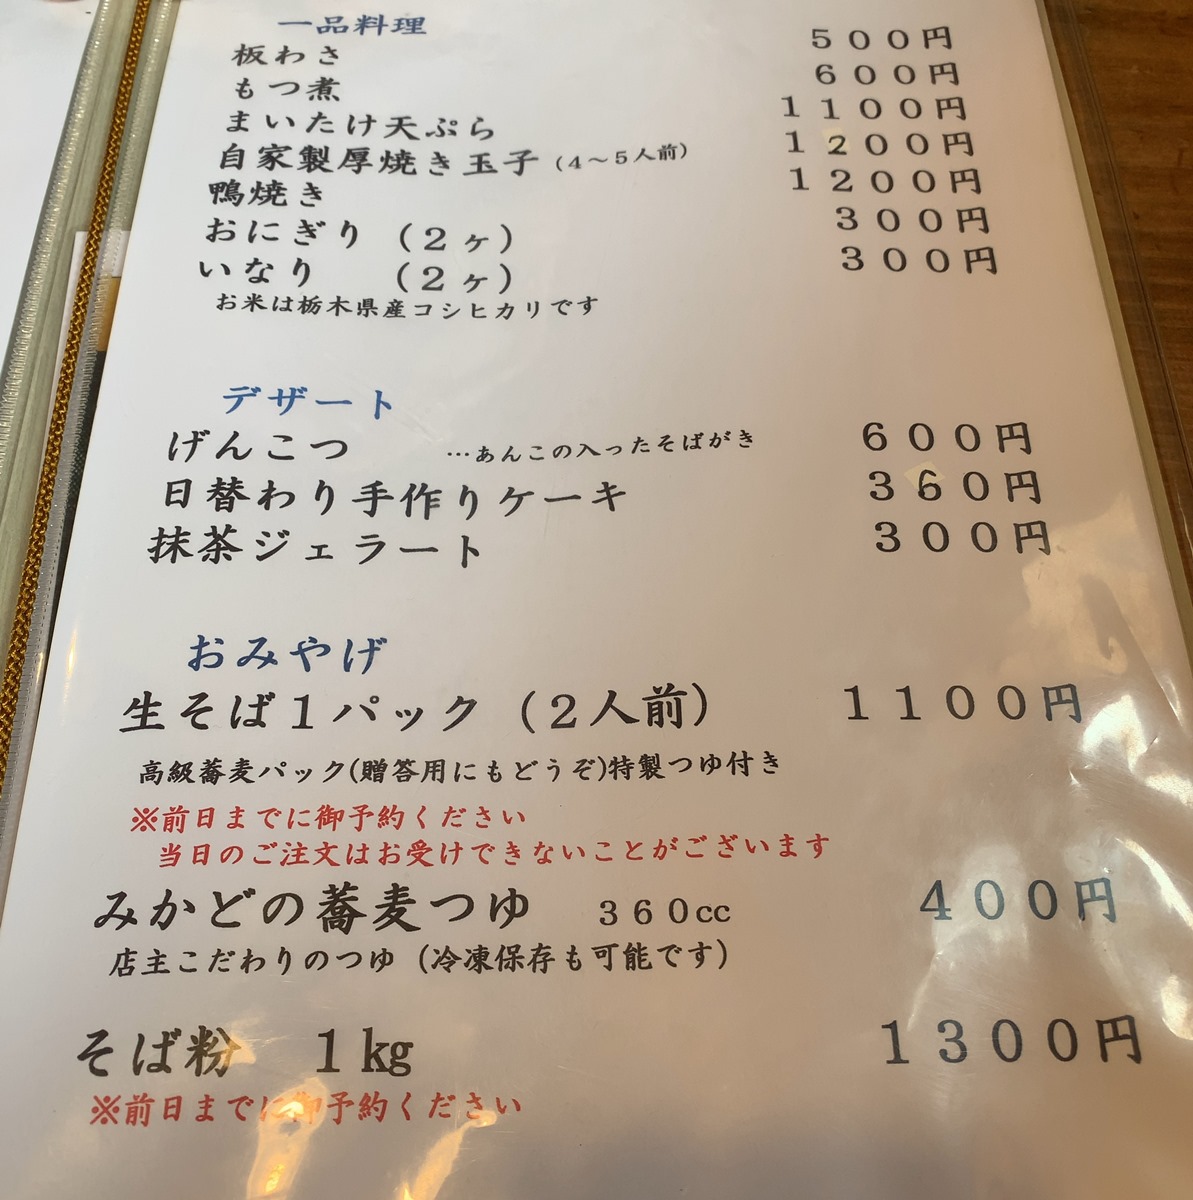 一品料理
板わさ 500円
もつ煮 600円
まいたけ天ぷら 1100円
自家製厚焼き玉子(4～5人前) 1200円
鴨焼き 1200円
おにぎり (2ヶ) 300円
いなり (2ヶ) 300円
お米は栃木県産コシヒカリです
デザート
げんこつ …あんこの入ったそばがき 600円
日替わり手作りケーキ 360円
抹茶ジェラート 300円
おみやげ
生そば1パック (2人前) 1100円
高級蕎麦パック(贈答用にもどうぞ)特製つゆ付き
※前日までに御予約ください
当日のご注文はお受けできないことがございます
みかどの蕎麦つゆ 360cc 400円
店主こだわりのつゆ (冷凍保存も可能です)
そば粉 1kg 1300円
※前日までに御予約ください